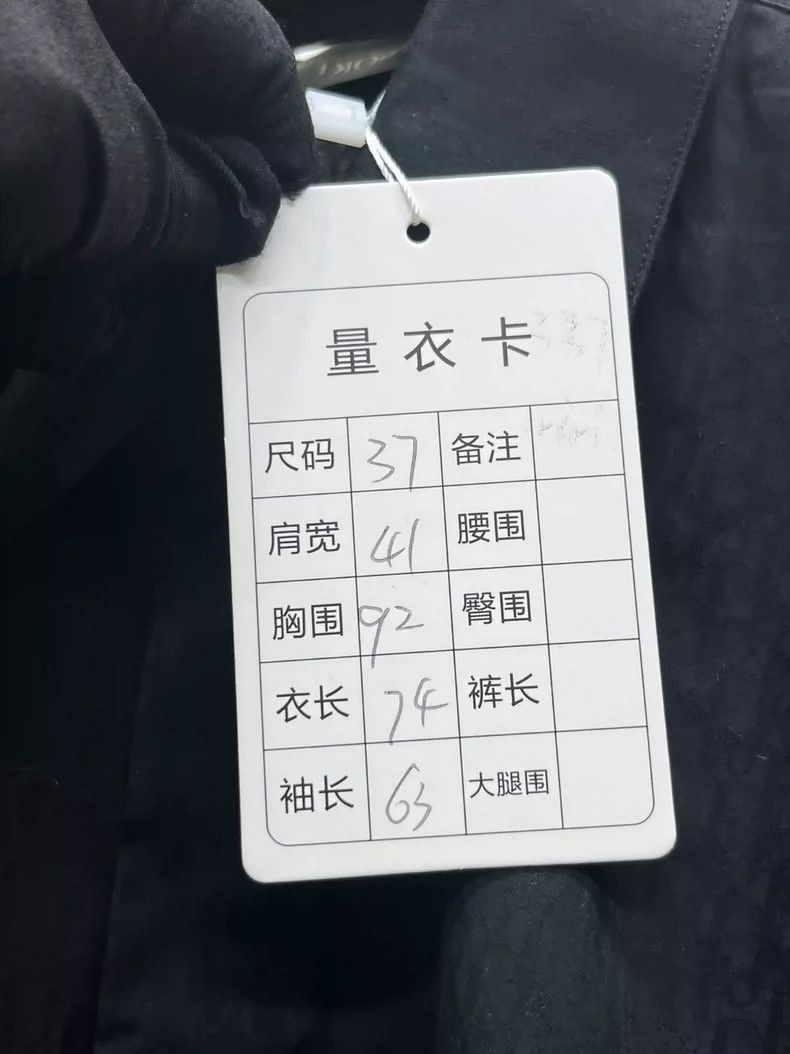 量衣卡
尺码 37 备注
肩宽 41 腰围
胸围 92 臀围
衣长 74 裤长
袖长 63 大腿围